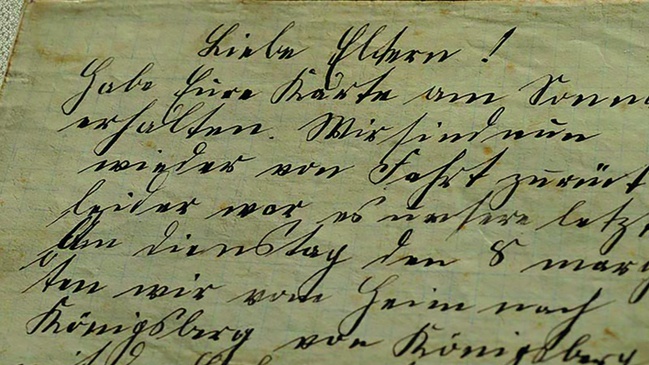 Liebe Eltern!
Habe Eure Karte am Sonn
erhalten. Wir sind nun
wieder von Fahrt zurück
leider war es unsere letz
Am dienstag den 8 mar
ten wir vom Heim nach
Königsberg von Königsberg